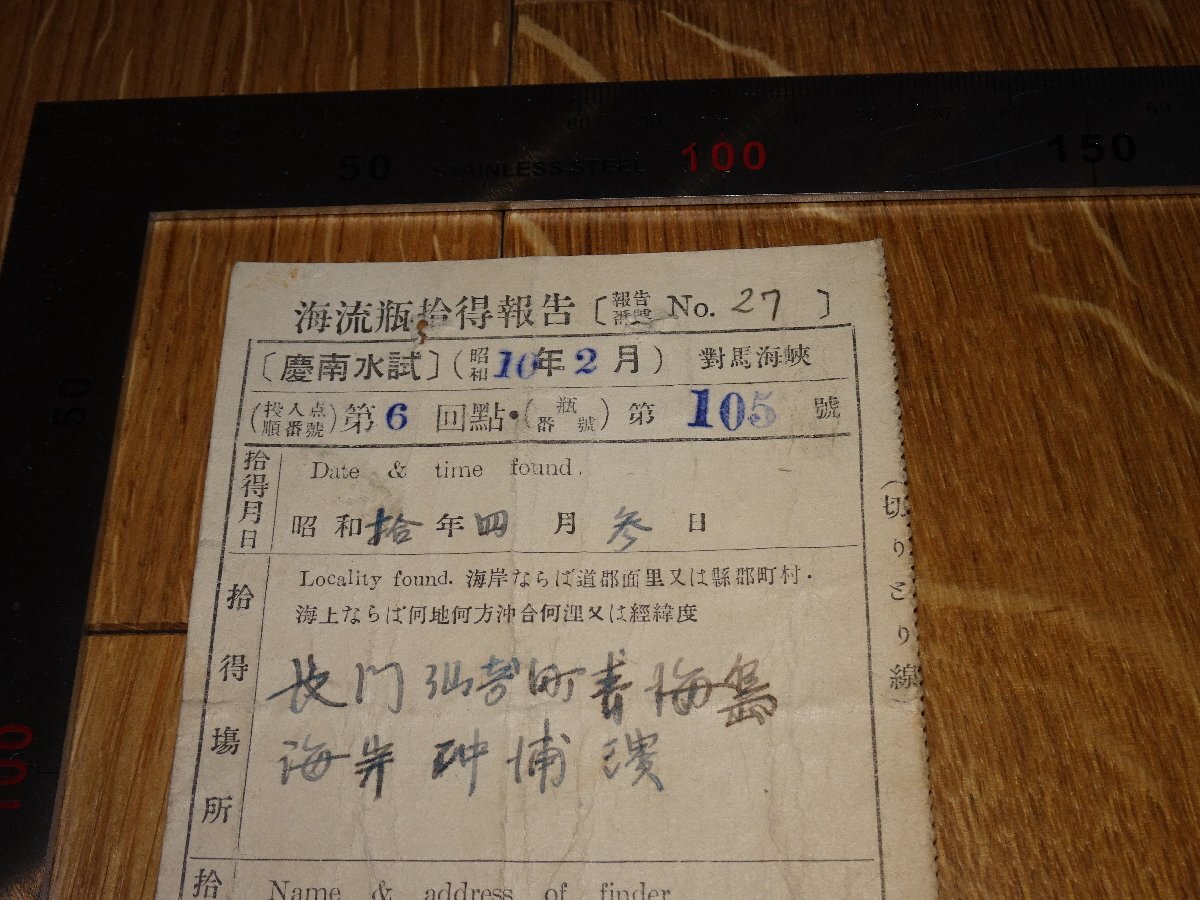 50 STAINLESS STEEL 100 150
50
100
海流瓶拾得報告〔報告番號 No. 27 〕
〔慶南水試〕(昭和10年2月) 對馬海峽
(投入点順番號)第6回點・(瓶番號)第105號
拾得月日
Date & time found.
昭和拾年四月参日
拾得場所
Locality found. 海岸ならば道郡面里又は縣郡町村・
海上ならば何地何方沖合何浬又は經緯度
長門仙崎町青海島
海岸 沖浦濱
(切りとり線)
拾
Name & address of finder